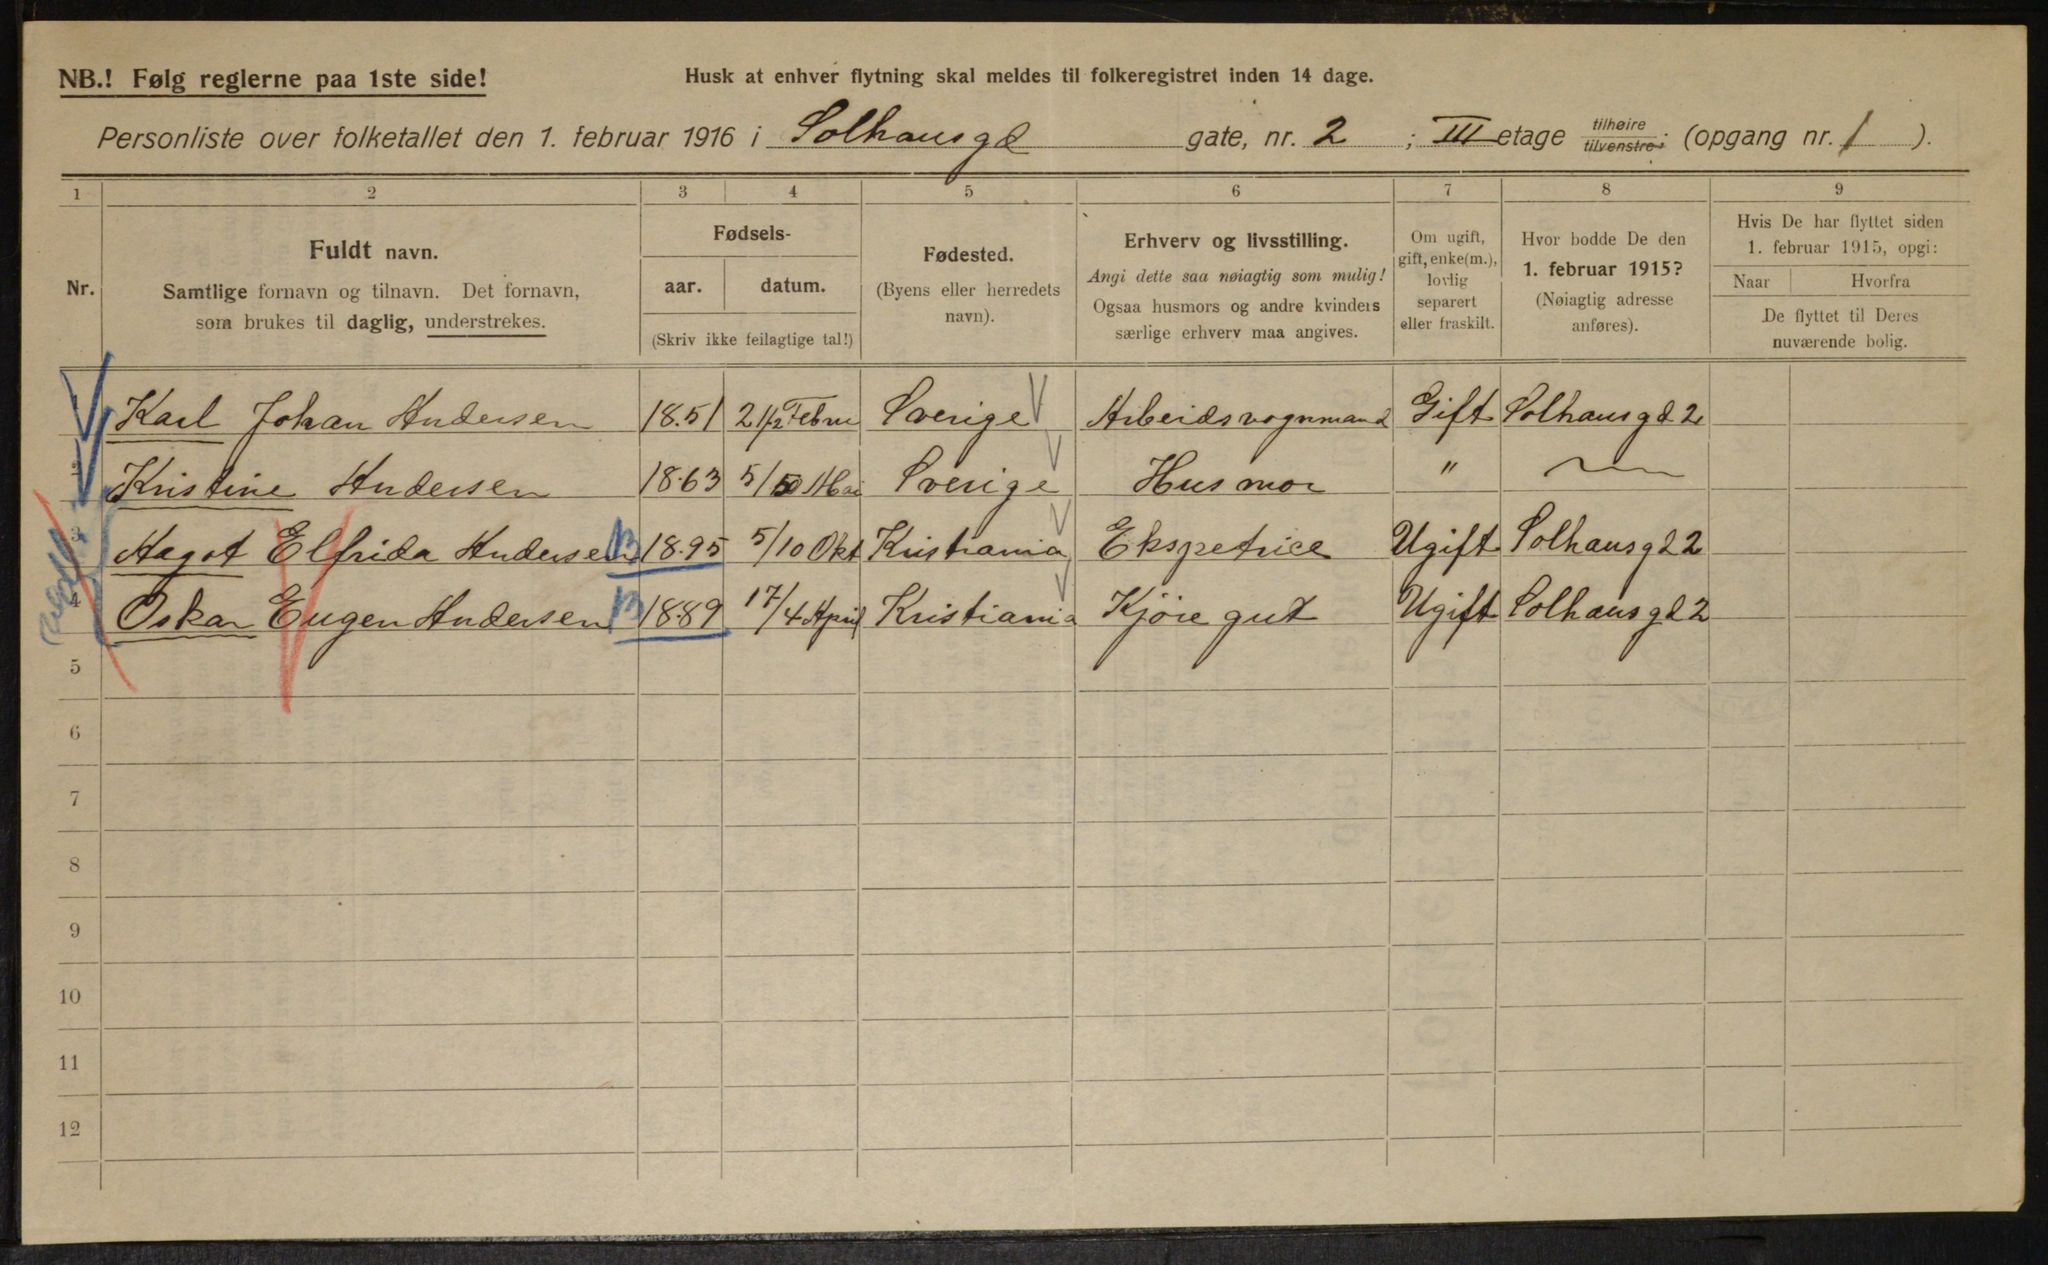 NB.! Følg reglerne paa 1ste side!
Husk at enhver flytning skal meldes til folkeregistret inden 14 dage.
Personliste over folketallet den 1. februar 1916 i Solhausgd gate, nr. 2 ; III etage tilhøire tilvenstre; (opgang nr. 1 ).
1 2 3 4 5 6 7 8 9
Nr.
Fuldt navn.
Samtlige fornavn og tilnavn. Det fornavn,
som brukes til daglig, understrekes.
Fødsels-
aar. datum.
(Skriv ikke feilagtige tal!)
Fødested.
(Byens eller herredets
navn).
Erhverv og livsstilling.
Angi dette saa nøiagtig som mulig!
Ogsaa husmors og andre kvinders
særlige erhverv maa angives.
Om ugift,
gift, enke(m.),
lovlig
separert
eller fraskilt.
Hvor bodde De den
1. februar 1915?
(Nøiagtig adresse
anføres).
Hvis De har flyttet siden
1. februar 1915, opgi:
Naar Hvorfra
De flyttet til Deres
nuværende bolig.
Karl Johan Andersen 1851 Febru Sverige Arbeidsvognmand Gift Solhausgd 2
Kristine Andersen 1863 Mai Sverige Husmor "
3 Aagot Elfrida Andersen 1895 5/10 Okt Kristiania Ekspetrice Ugift Solhausgd 2
4 Oskar Eugen Andersen 1889 17/4 April Kristiania Kjöre gut Ugift Solhausgd 2
5
6
7
8
9
10
11
12